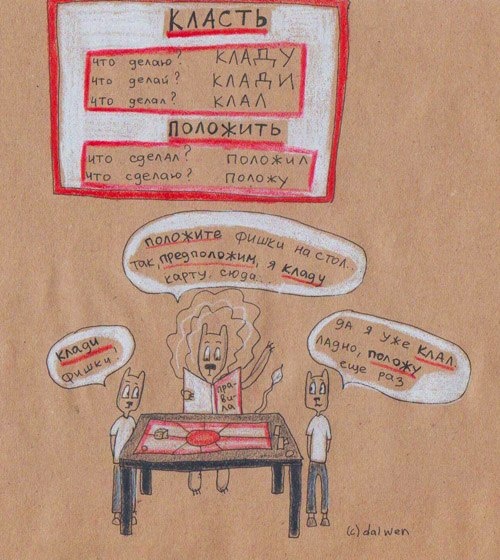 КЛАСТЬ
что делаю? КЛАДУ
что делай? КЛАДИ
что делал? КЛАЛ
ПОЛОЖИТЬ
что сделал? ПОЛОЖИЛ
что сделаю? ПОЛОЖУ
положите фишки на стол.
Так, предположим, я кладу
карту сюда...
клади
фишки,
да я уже клал,
ладно, положу
еще раз
пра-
ви-
ла
(c) dalwen